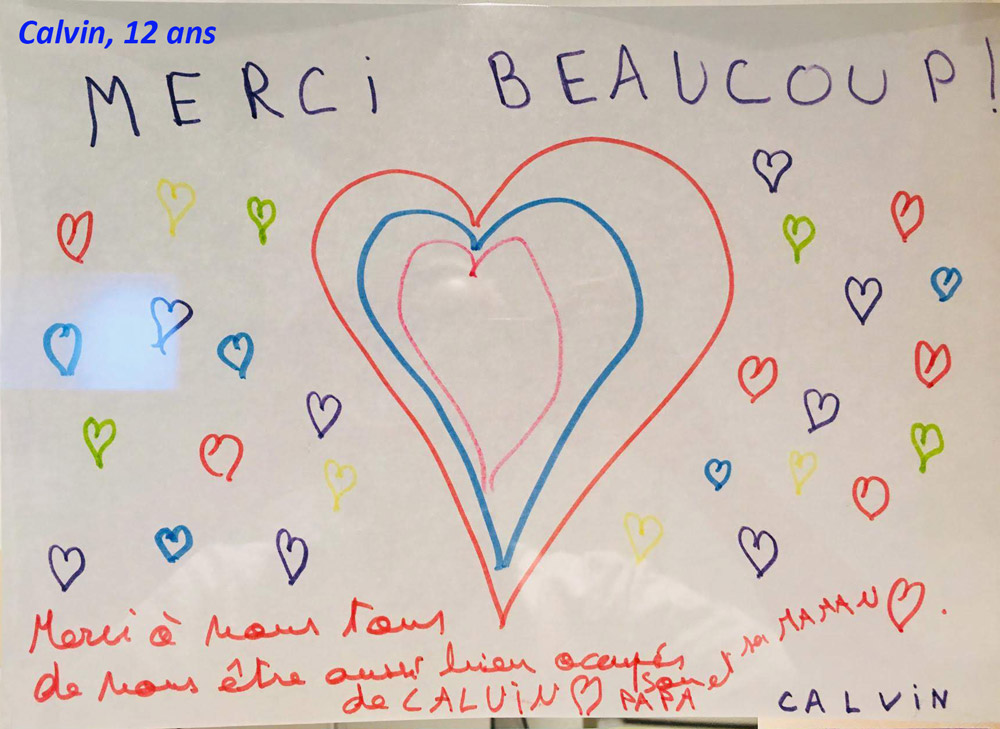 Calvin, 12 ans
MERCi BEAUCOUP!
Merci à vous tous
de vous être aussi bien occupés
de CALViN ♡ Son PAPA et sa MAMAN ♡.
CALViN